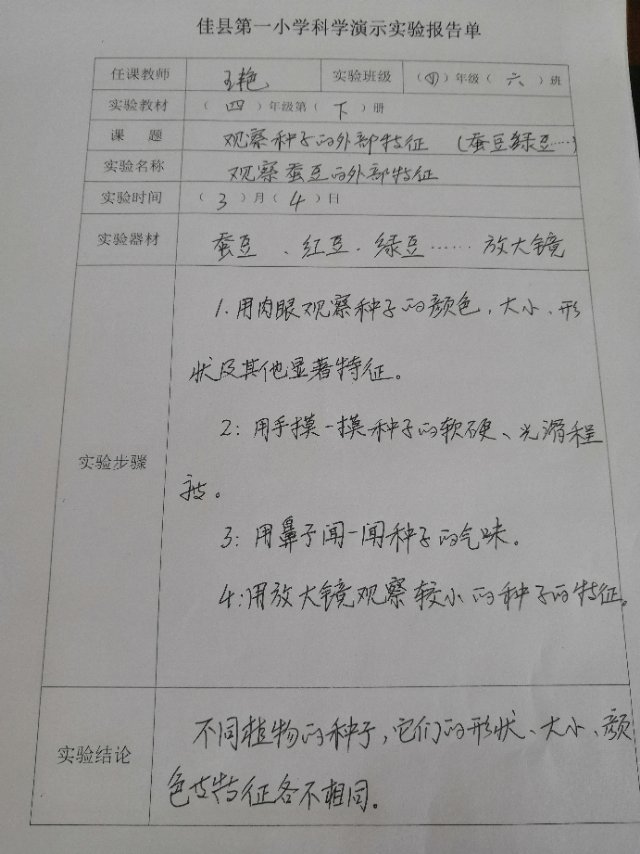 佳县第一小学科学演示实验报告单
任课教师 王艳 实验班级 （四）年级（六）班
实验教材 （四）年级第（下）册
课 题 观察种子的外部特征 （蚕豆绿豆…）
实验名称 观察蚕豆的外部特征
实验时间 （3）月（4）日
实验器材 蚕豆、红豆、绿豆…… 放大镜
1.用肉眼观察种子的颜色，大小、形
状及其他显著特征。
2：用手摸一摸种子的软硬、光滑程
实验步骤
度。
3：用鼻子闻一闻种子的气味。
4：用放大镜观察较小的种子的特征。
不同植物的种子，它们的形状、大小、颜
实验结论
色等特征各不相同。